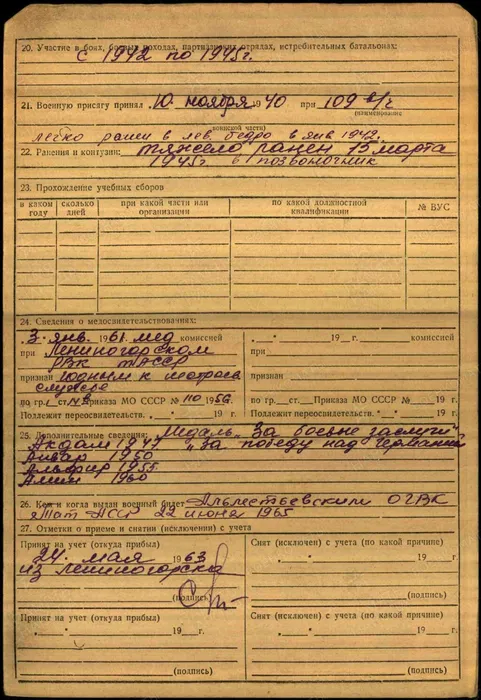 20. Участие в боях, боевых походах, партизанских отрядах, истребительных батальонах:
с 1942 по 1945г.
21. Военную присягу принял „10“ ноября 1940 при 109 в/ч
(наименование
воинской части)
легко ранен в лев. бедро в янв 1942.
22. Ранения и контузии: тяжело ранен 15 марта
1945г в позвоночник
23. Прохождение учебных сборов
в каком году
сколько дней
при какой части или организации
по какой должностной квалификации
№ ВУС
24. Сведения о медосвидетельствованиях:
„3“ янв. 1961 мед комиссией
при Лениногорском
РВК ТАССР
признан годным к
службе
по гр. I ст. Приказа МО СССР № 110 1956
Подлежит переосвидетельств. „ “ 19 г.
„ “ 19 г. комиссией
при
признан
по гр. ст. Приказа МО СССР № 19
Подлежит переосвидетельств. „ “ 19 г.
25. Дополнительные сведения: Медаль „За боевые заслуги“
„За победу над Германией
Акдам 1947.
Анвар 1950
Альфир 1955
1960
26. Кем и когда выдан военный билет Альметьевским ОГВК
ТАССР 22 июня 1965
27. Отметки о приеме и снятии (исключении) с учета
Принят на учет (откуда прибыл)
„24“ мая 1963
из Лениногорска
(подпись)
Снят (исключен) с учета (по какой причине)
„ “ 19 г.
(подпись)
Принят на учет (откуда прибыл)
„ “ 19 г.
(подпись)
Снят (исключен) с учета (по какой причине)
„ “ 19 г.
(подпись)